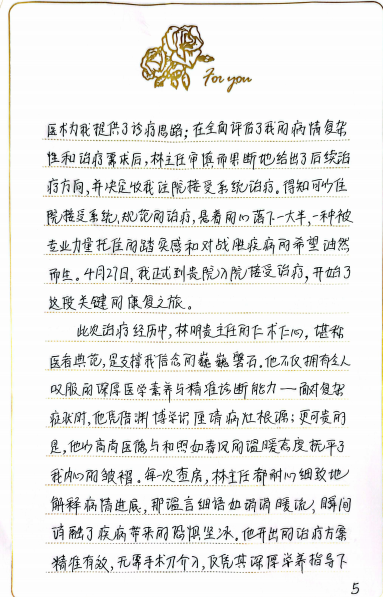 For you
医术为我提供了诊疗思路；在全面评估了我的病情复杂
性和治疗需求后，林主任审慎而果断地给出了后续治
疗方向，并决定收我住院接受系统治疗。得知可以住
院接受系统、规范的治疗，悬着的心落下一大半，一种被
专业力量托住的踏实感和对战胜疾病的希望油然
而生。4月27日，我正式到贵院入院接受治疗，开始了
这段关键的康复之旅。
此次治疗经历中，林明贵主任的仁术仁心，堪称
医者典范，是支撑我信念的巍巍磐石。他不仅拥有令人
叹服的深厚医学素养与精准诊断能力——面对复杂
症状时，他凭借渊博学识厘清病灶根源；更可贵的
是，他以高尚医德与和煦如春风的温暖态度抚平了
我内心的皱褶。每一次查房，林主任都耐心细致地
解释病情进展，那温言细语如涓涓暖流，瞬间
消融了疾病带来的恐惧坚冰。他开出的治疗方案
精准有效，无需手术刀介入，仅凭其深厚学养指导下
5